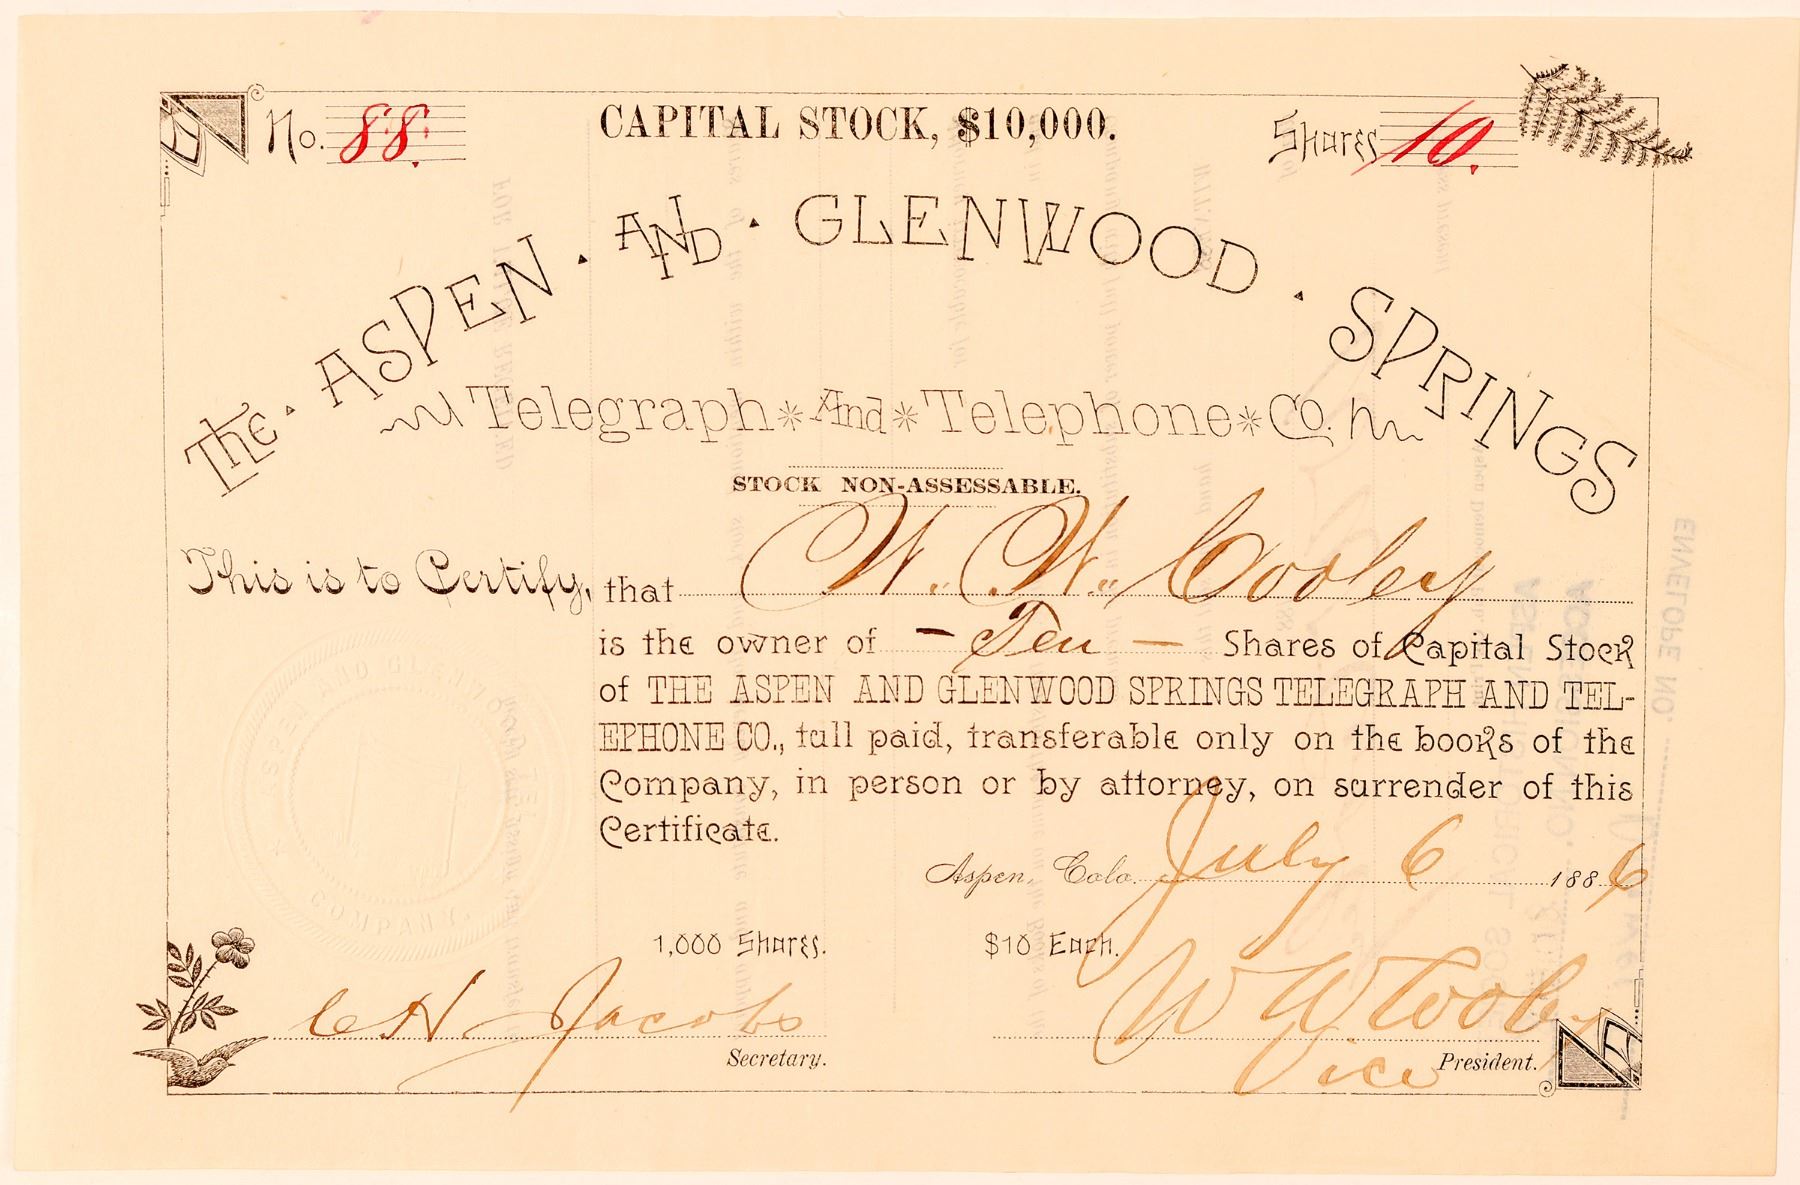 No. 88.
CAPITAL STOCK, $10,000.
Shares 10.
The · ASPEN · AND · GLENWOOD · SPRINGS
Telegraph * And * Telephone * Co.
STOCK NON-ASSESSABLE.
This is to Certify, that W. W. Cooley
is the owner of - Ten - Shares of Capital Stock
of THE ASPEN AND GLENWOOD SPRINGS TELEGRAPH AND TEL-
EPHONE CO., full paid, transferable only on the books of the
Company, in person or by attorney, on surrender of this
Certificate.
Aspen, Colo. July 6 1886
1,000 Shares. $10 Each.
C H Jacobs
Secretary.
W W Cooley
Vice President.
ASPEN AND GLENWOOD
COMPANY.
ENVELOPE NO.
ACCESSION NO.
ASPEN HISTORICAL SOC